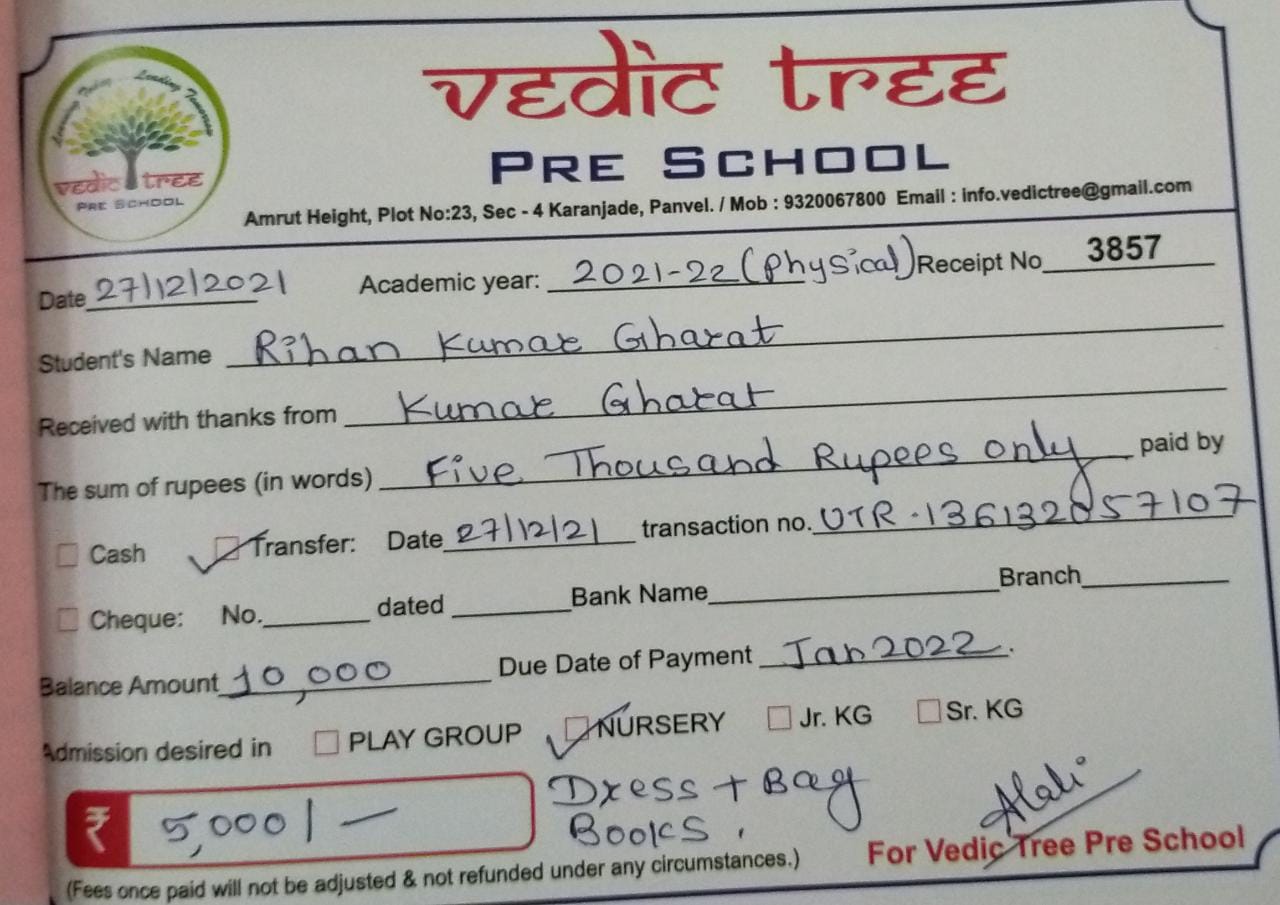 Learning Today... Leading Tomorrow
vedic tree
PRE SCHOOL
vedic tree
PRE SCHOOL
Amrut Height, Plot No:23, Sec - 4 Karanjade, Panvel. / Mob : 9320067800 Email : info.vedictree@gmail.com
Date 27/12/2021 Academic year: 2021-22 (Physical) Receipt No 3857
Student's Name Rihan Kumar Gharat
Received with thanks from Kumar Gharat
The sum of rupees (in words) Five Thousand Rupees only paid by
Cash Transfer: Date 27/12/21 transaction no. UTR-136132057107
Cheque: No. dated Bank Name Branch
Balance Amount 10,000 Due Date of Payment Jan 2022.
Admission desired in PLAY GROUP NURSERY Jr. KG Sr. KG
₹ 5,000/- Dress + Bag
Books.
For Vedic Tree Pre School
(Fees once paid will not be adjusted & not refunded under any circumstances.)